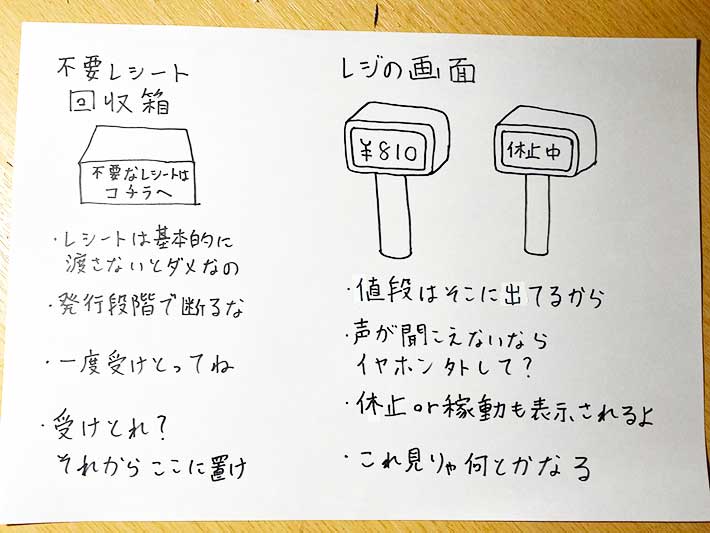 不要レシート
回収箱
不要なレシートは
コチラへ
・レシートは基本的に
渡さないとダメなの
・発行段階で断るな
・一度受けとってね
・受けとれ?
それからここに置け
レジの画面
¥810
休止中
・値段はそこに出てるから
・声が聞こえないなら
イヤホン外して?
・休止or稼動も表示されるよ
・これ見りゃ何とかなる